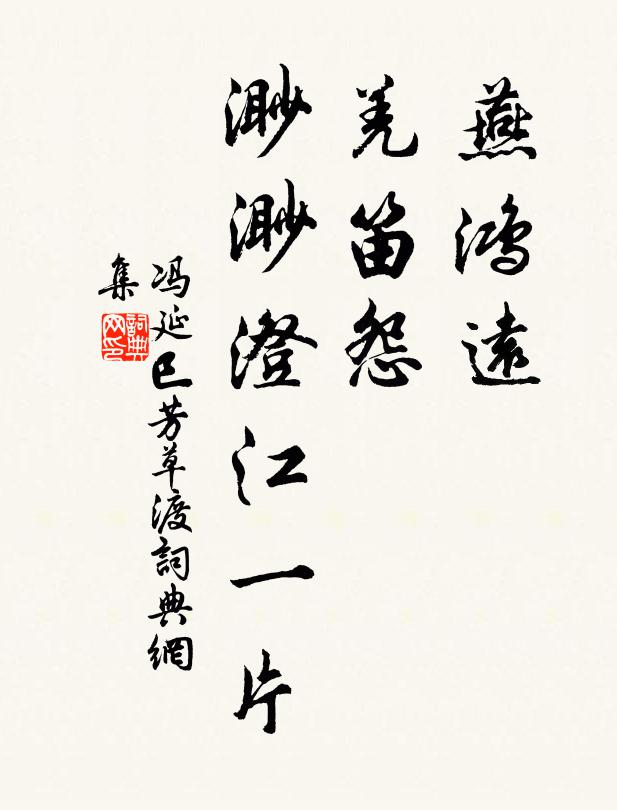 燕鴻遠
羌笛怨
渺渺澄江一片
冯延巳芳草渡詞典網
集
詞典
网印